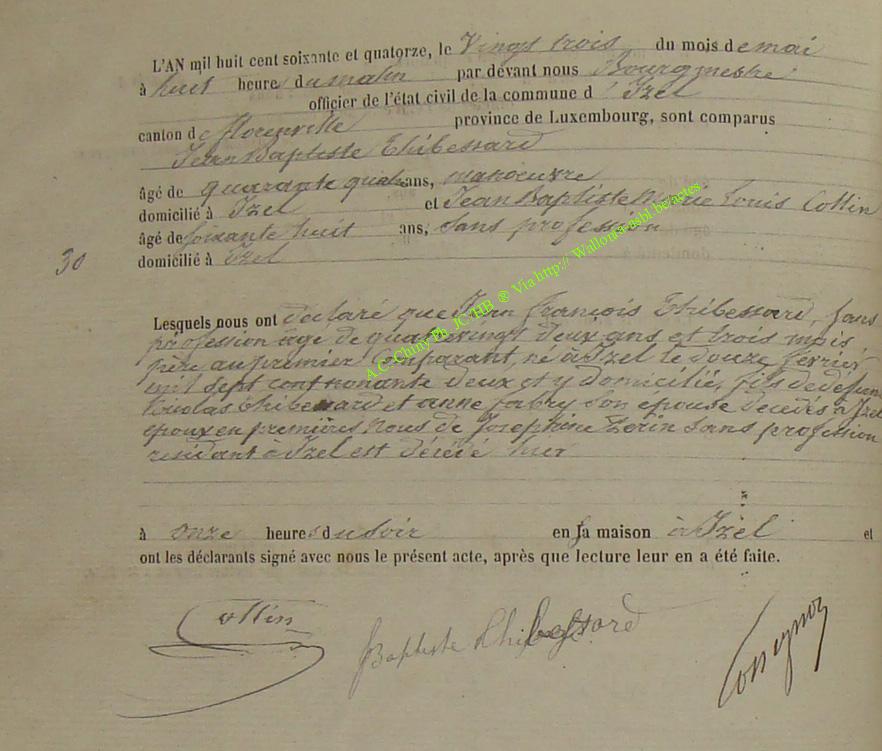 L'AN mil huit cent soixante et quatorze, le Vingt trois du mois de mai
à huit heure du matin par devant nous Bourgmestre
officier de l'état civil de la commune d'Izel
canton de florenville province de Luxembourg, sont comparus
Jean Baptiste Thibessard
âgé de quarante quatre ans, manoeuvre
domicilié à Izel et Jean Baptiste Marie Louis Collin
âgé de soixante huit ans, sans profession
30 domicilié à Izel
Lesquels nous ont déclaré que Jean François Thibessard, sans
profession age de quatrevingt deux ans et trois mois
père au premier Comparant, né à Izel le douze février
mil sept cent nonante deux et y domicilié, fils de defunt
Nicolas Thibessard et anne fabry son épouse decedés à Izel
epoux en premières Noces de Josephine Zorin sans profession
residant à Izel est décédé hier
à onze heures du soir en sa maison à Izel et
ont les déclarants signé avec nous le présent acte, après que lecture leur en a été faite.
Collin Baptiste Thibessard
A.C-Chiny Ph. JC. HB ® Via http:// Wallonia-asbl.be/actes